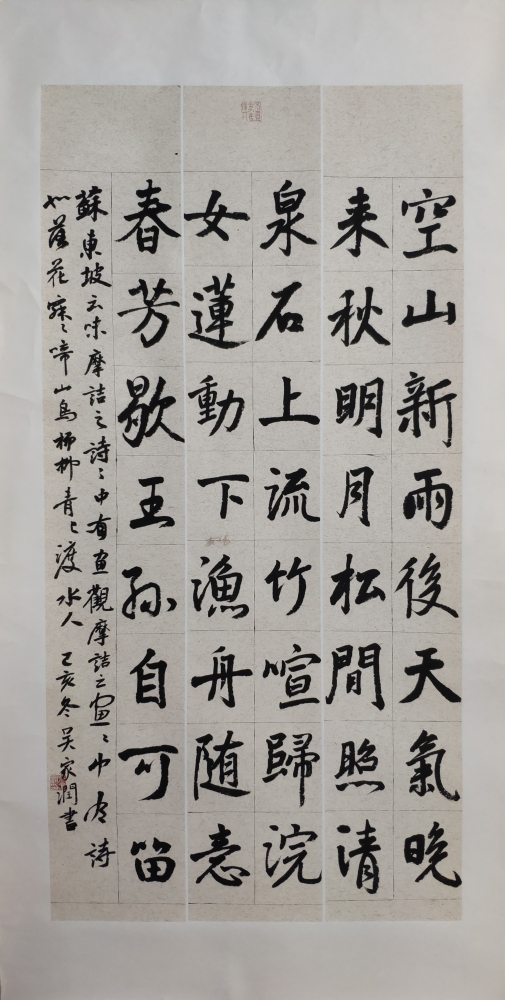 空山新雨後天氣晚
来秋明月松間照清
泉石上流竹喧歸浣
女蓮動下漁舟随意
春芳歇王孫自可留
蘇東坡云味摩詰之詩〻中有畫觀摩詰之畫〻中有詩
如落花寂〻啼山鳥楊柳青〻渡水人 己亥冬吴家潤書